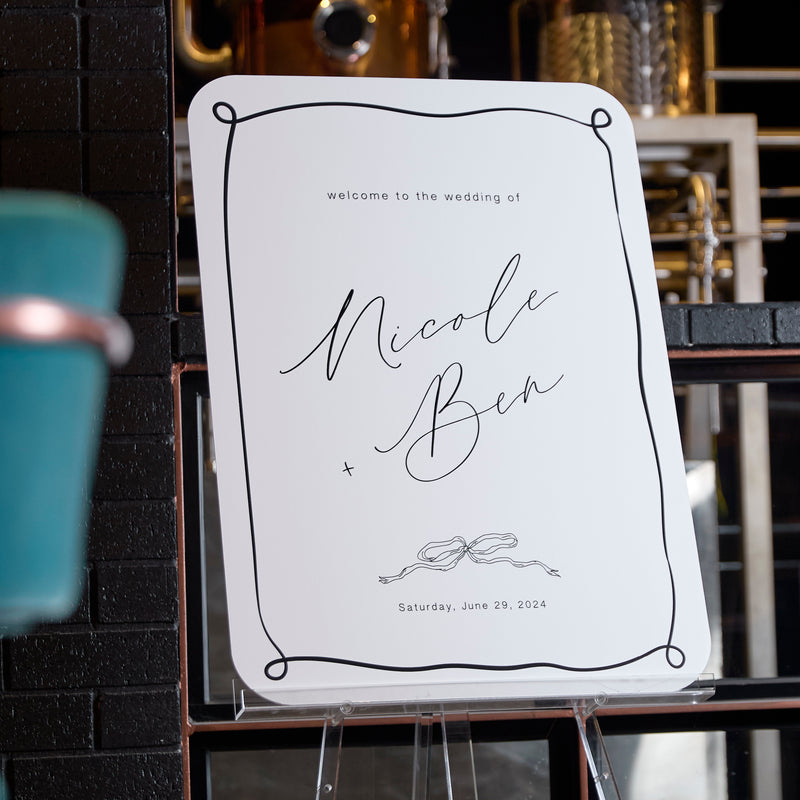 welcome to the wedding of
Nicole
+ Ben
Saturday, June 29, 2024